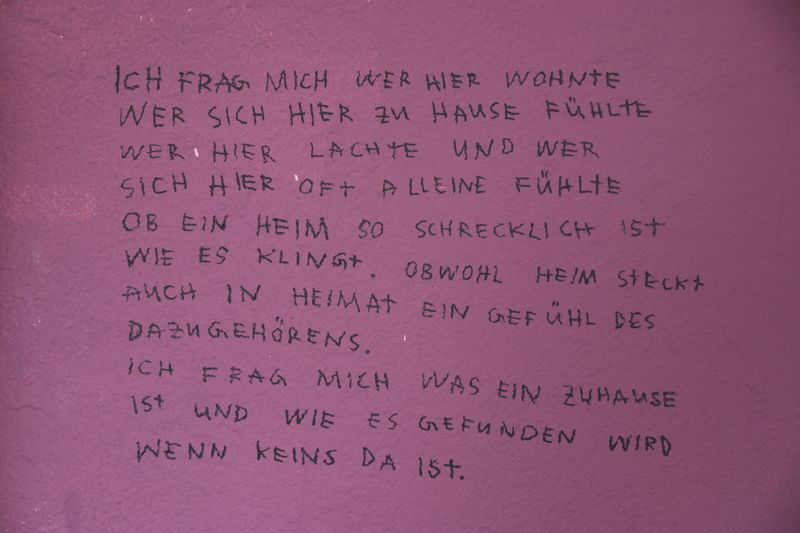 ICH FRAG MICH WER HIER WOHNTE
WER SICH HIER ZU HAUSE FÜHLTE
WER HIER LACHTE UND WER
SICH HIER OFT ALLEINE FÜHLTE
OB EIN HEIM SO SCHRECKLICH IST
WIE ES KLINGT. OBWOHL HEIM STECKT
AUCH IN HEIMAT EIN GEFÜHL DES
DAZUGEHÖRENS.
ICH FRAG MICH WAS EIN ZUHAUSE
IST UND WIE ES GEFUNDEN WIRD
WENN KEINS DA IST.